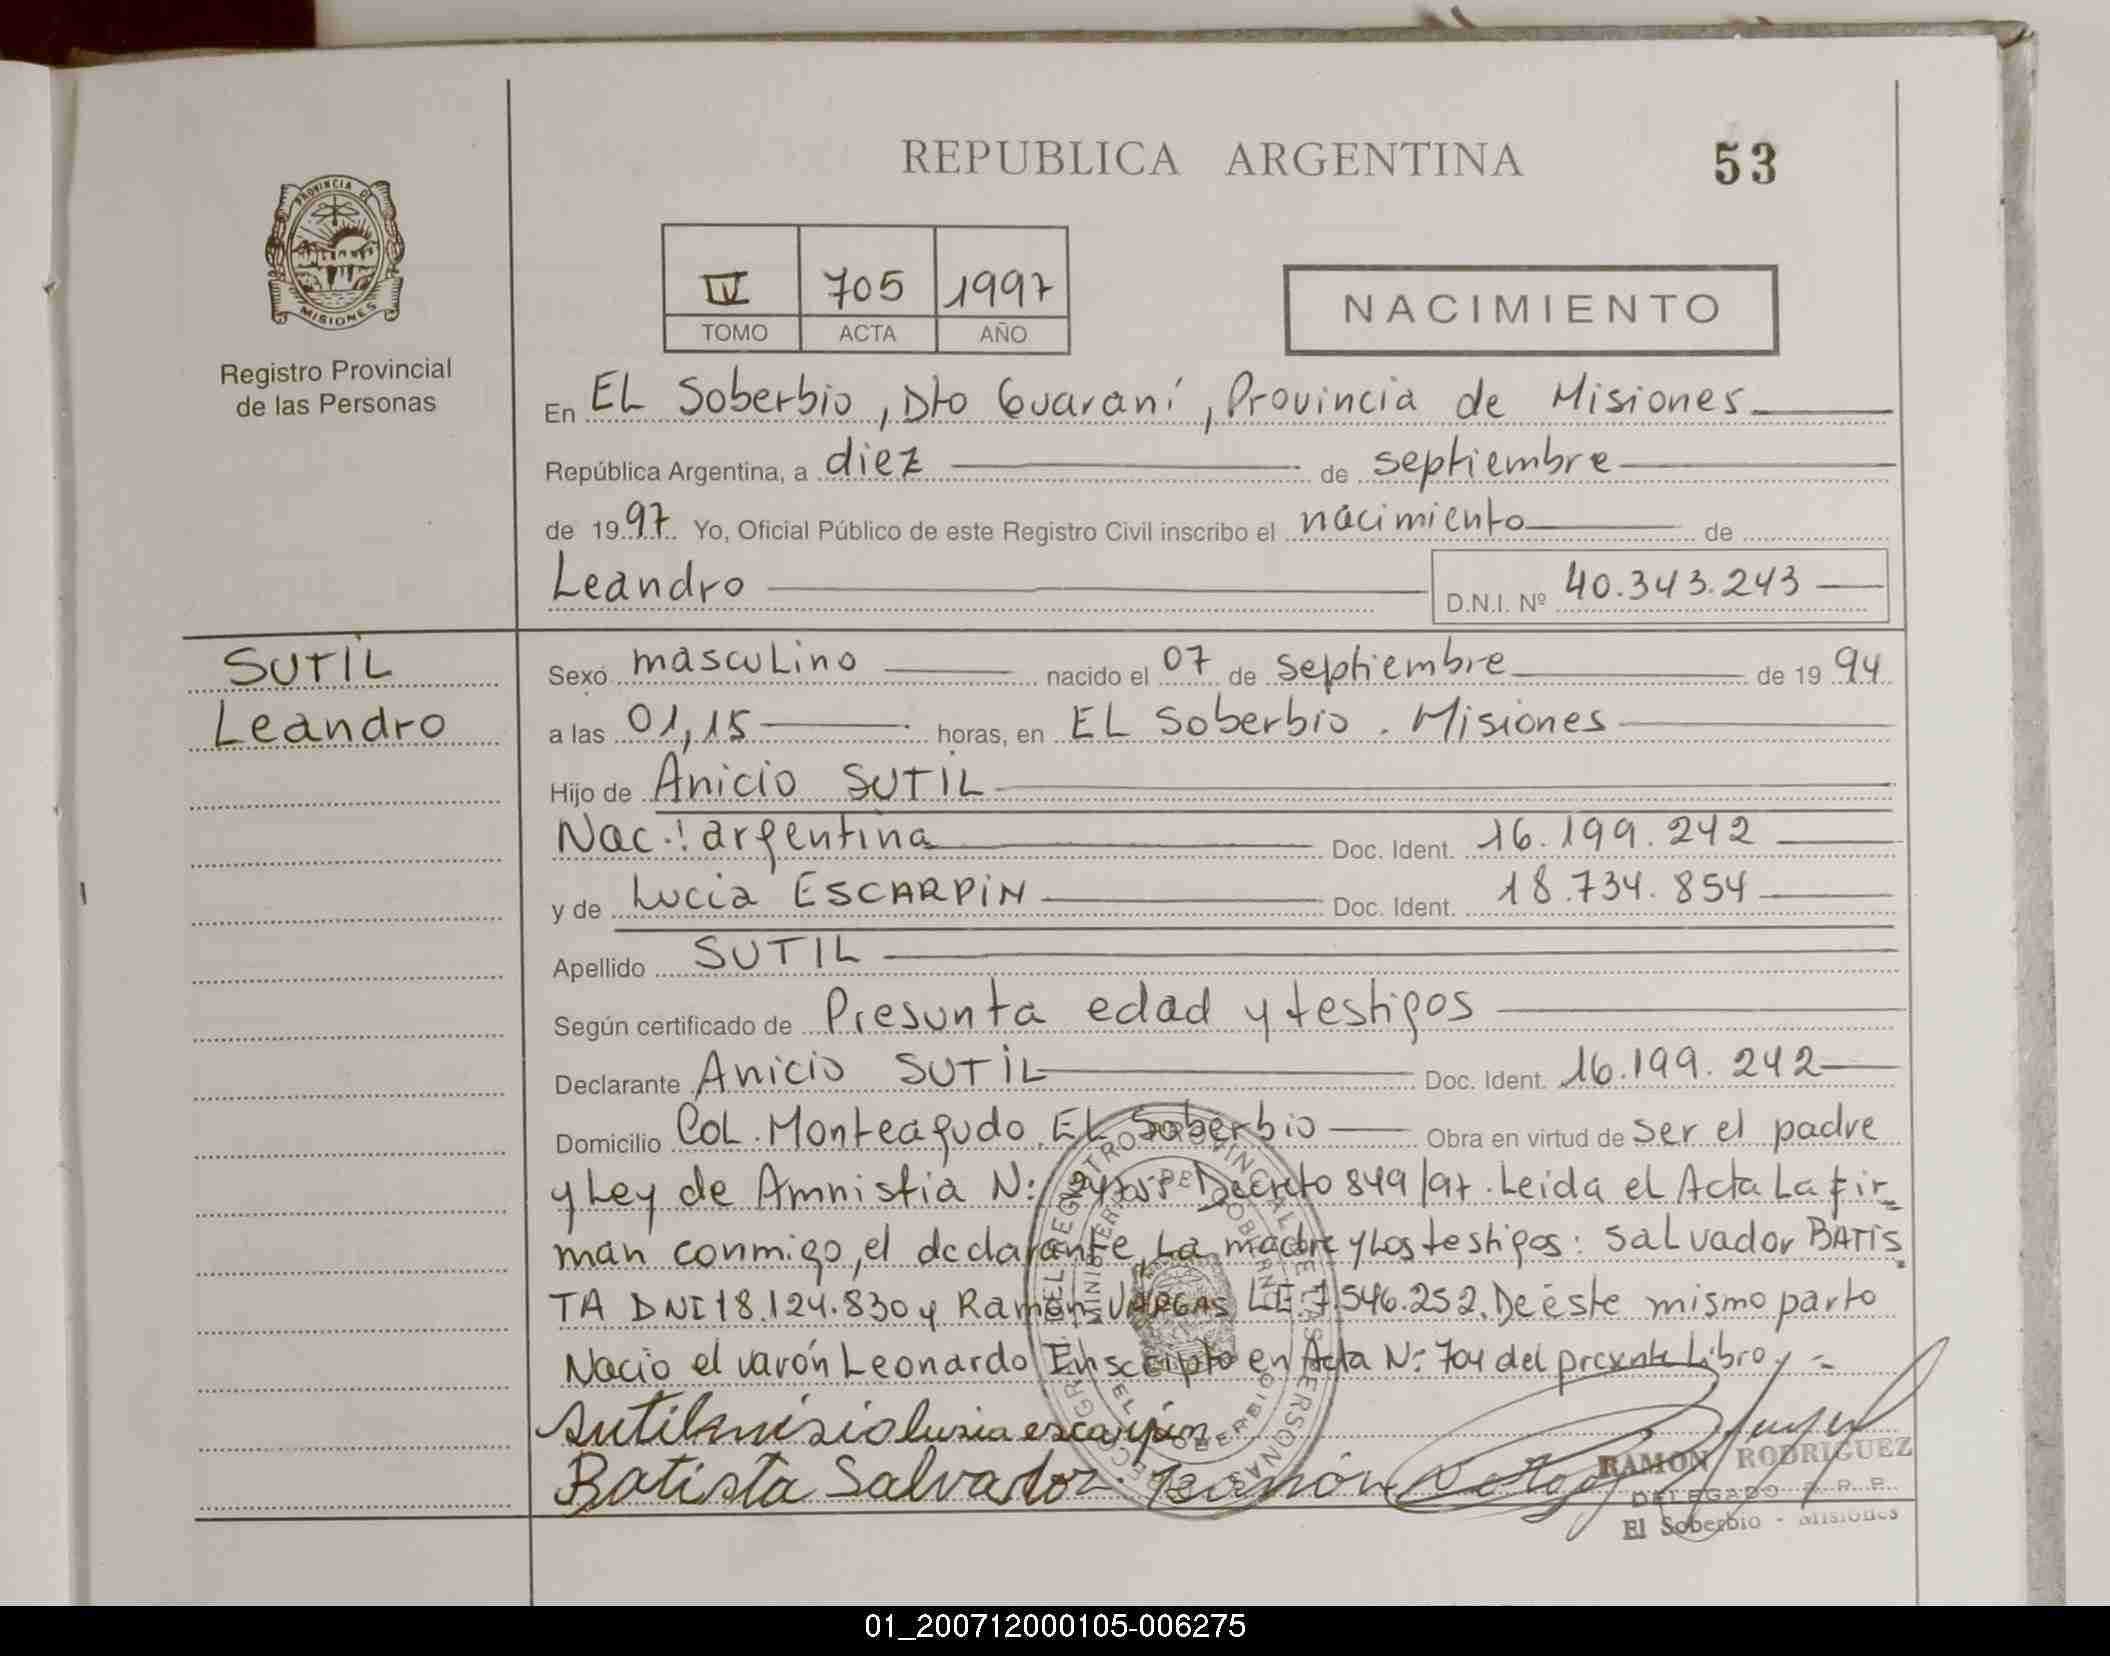 REPUBLICA ARGENTINA
53
PROVINCIA DE
MISIONES
Registro Provincial
de las Personas
IV 705 1997
TOMO ACTA AÑO
NACIMIENTO
En EL Soberbio, Dto Guaraní, Provincia de Misiones
República Argentina, a diez de septiembre
de 1997 Yo, Oficial Público de este Registro Civil inscribo el nacimiento de
Leandro D.N.I. Nº 40.343.243
SUTIL
Leandro
Sexo masculino nacido el 07 de septiembre de 1994
a las 01,15 horas, en EL Soberbio. Misiones
Hijo de Anicio SUTIL
Nac.: argentina Doc. Ident. 16.199.242
y de Lucia ESCARPIN Doc. Ident. 18.734.854
Apellido SUTIL
Según certificado de Presunta edad y testigos
Declarante Anicio SUTIL Doc. Ident. 16.199.242
Domicilio Col. Monteagudo. EL Soberbio Obra en virtud de ser el padre
y Ley de Amnistia N: Decreto 849/97. Leida el Acta La fir_
man conmigo, el declarante, La madre y Los testigos: Salvador BATIS_
TA DNI 18.124.830 y Ramón VARGAS LE: 7.546.252. De éste mismo parto
Nacio el varón Leonardo Inscripto en Acta N: 704 del presente Libro.-
lusia escarpin
Batista Salvador. Ramón
RAMON RODRIGUEZ
DELEGADO R. P. P.
El Soberbio - Misiones
01_200712000105-006275